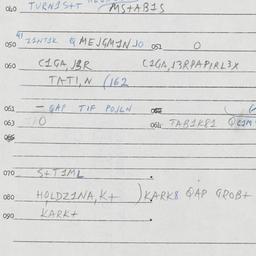 040 TURN1S+T MS+AB1S
050 Z1NT1K QMEJGM1NJO 052 O
060 C1GA,J3R C1GA,J3RPAPIRL3X
TAT1,N (162
061 - GAP TIF POJLN 062
063 O 064 TAB1K81
065
070 S+T1ML
080 HOLDZ1NA,K+ )KARK8 QAP GROB+
090 KARK+